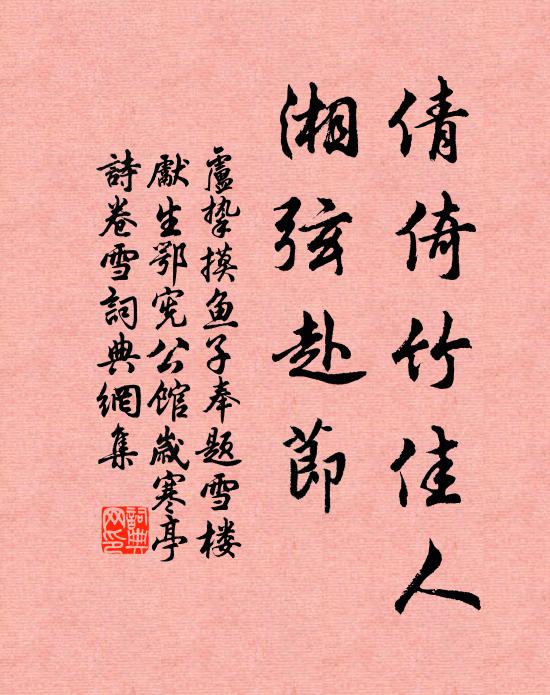 倩倚竹佳人
湘弦赴節
盧摯摸魚子奉題雪楼
獻生鄂宪公館歲寒亭
詩卷雪詞典網集
詞典
网印